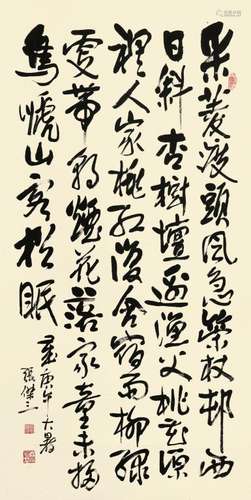 采菱渡頭風急策杖邨西
日斜杏樹壇邊漁父桃花源
裡人家桃紅復含宿雨柳綠
更帶朝煙花落家童未掃
鳥嗁山客猶眠
庚午大暑
張傑三